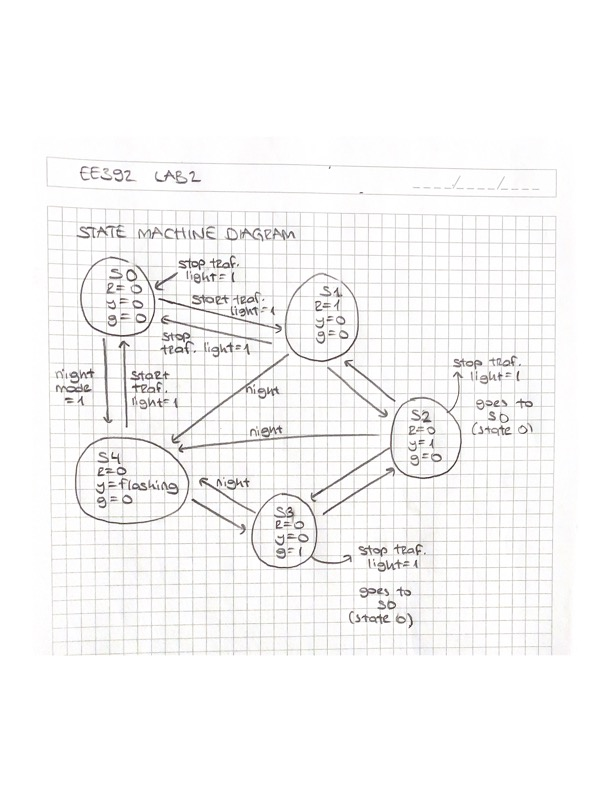 EE392 LAB2
__ __/__ __/__ __
STATE MACHINE DIAGRAM
stop traf.
light=1
S0
R=0
y=0
g=0
start traf.
light=1
stop
traf. light=1
S1
R=1
y=0
g=0
night
mode
=1
start
traf.
light=1
night
night
stop traf.
light=1
goes to
S0
(state 0)
S2
R=0
y=1
g=0
S4
R=0
y=flashing
g=0
night
S3
R=0
y=0
g=1
stop traf.
light=1
goes to
S0
(state 0)